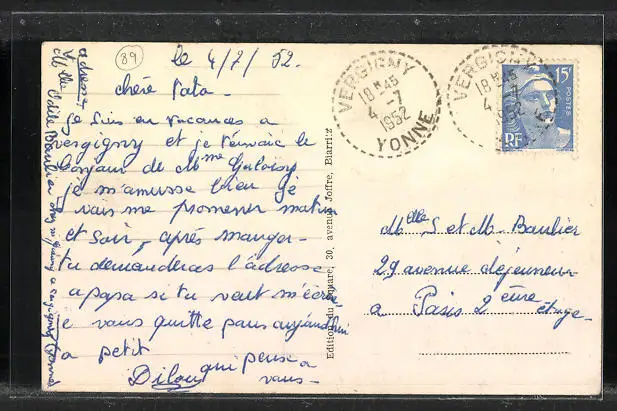 89
le 4/7/52.
chère Tata -
je suis en vacances a
vergigny et je t'envoie le
bonjour de Mme
je m'amusse bien je
vais me promener matin
et soir, après manger -
tu demanderas l'adresse
a papa si tu veut m'écrire
je vous quitte pour aujourd'hui
a petit
Dilou qui pense a
vous -
adresse
Mlle Odile Baulier chez
a vergigny (Yonne)
Edition du Square, 30, avenue Joffre, Biarritz
VERGIGNY
18 H 45
4 -7
1952
YONNE
VERGIGNY
18 H 45
4 -7
1952
15F
POSTES
RF
Mlle S et M. Baulier
29 avenue déjeuneur
a Paris 2 éure
étage -